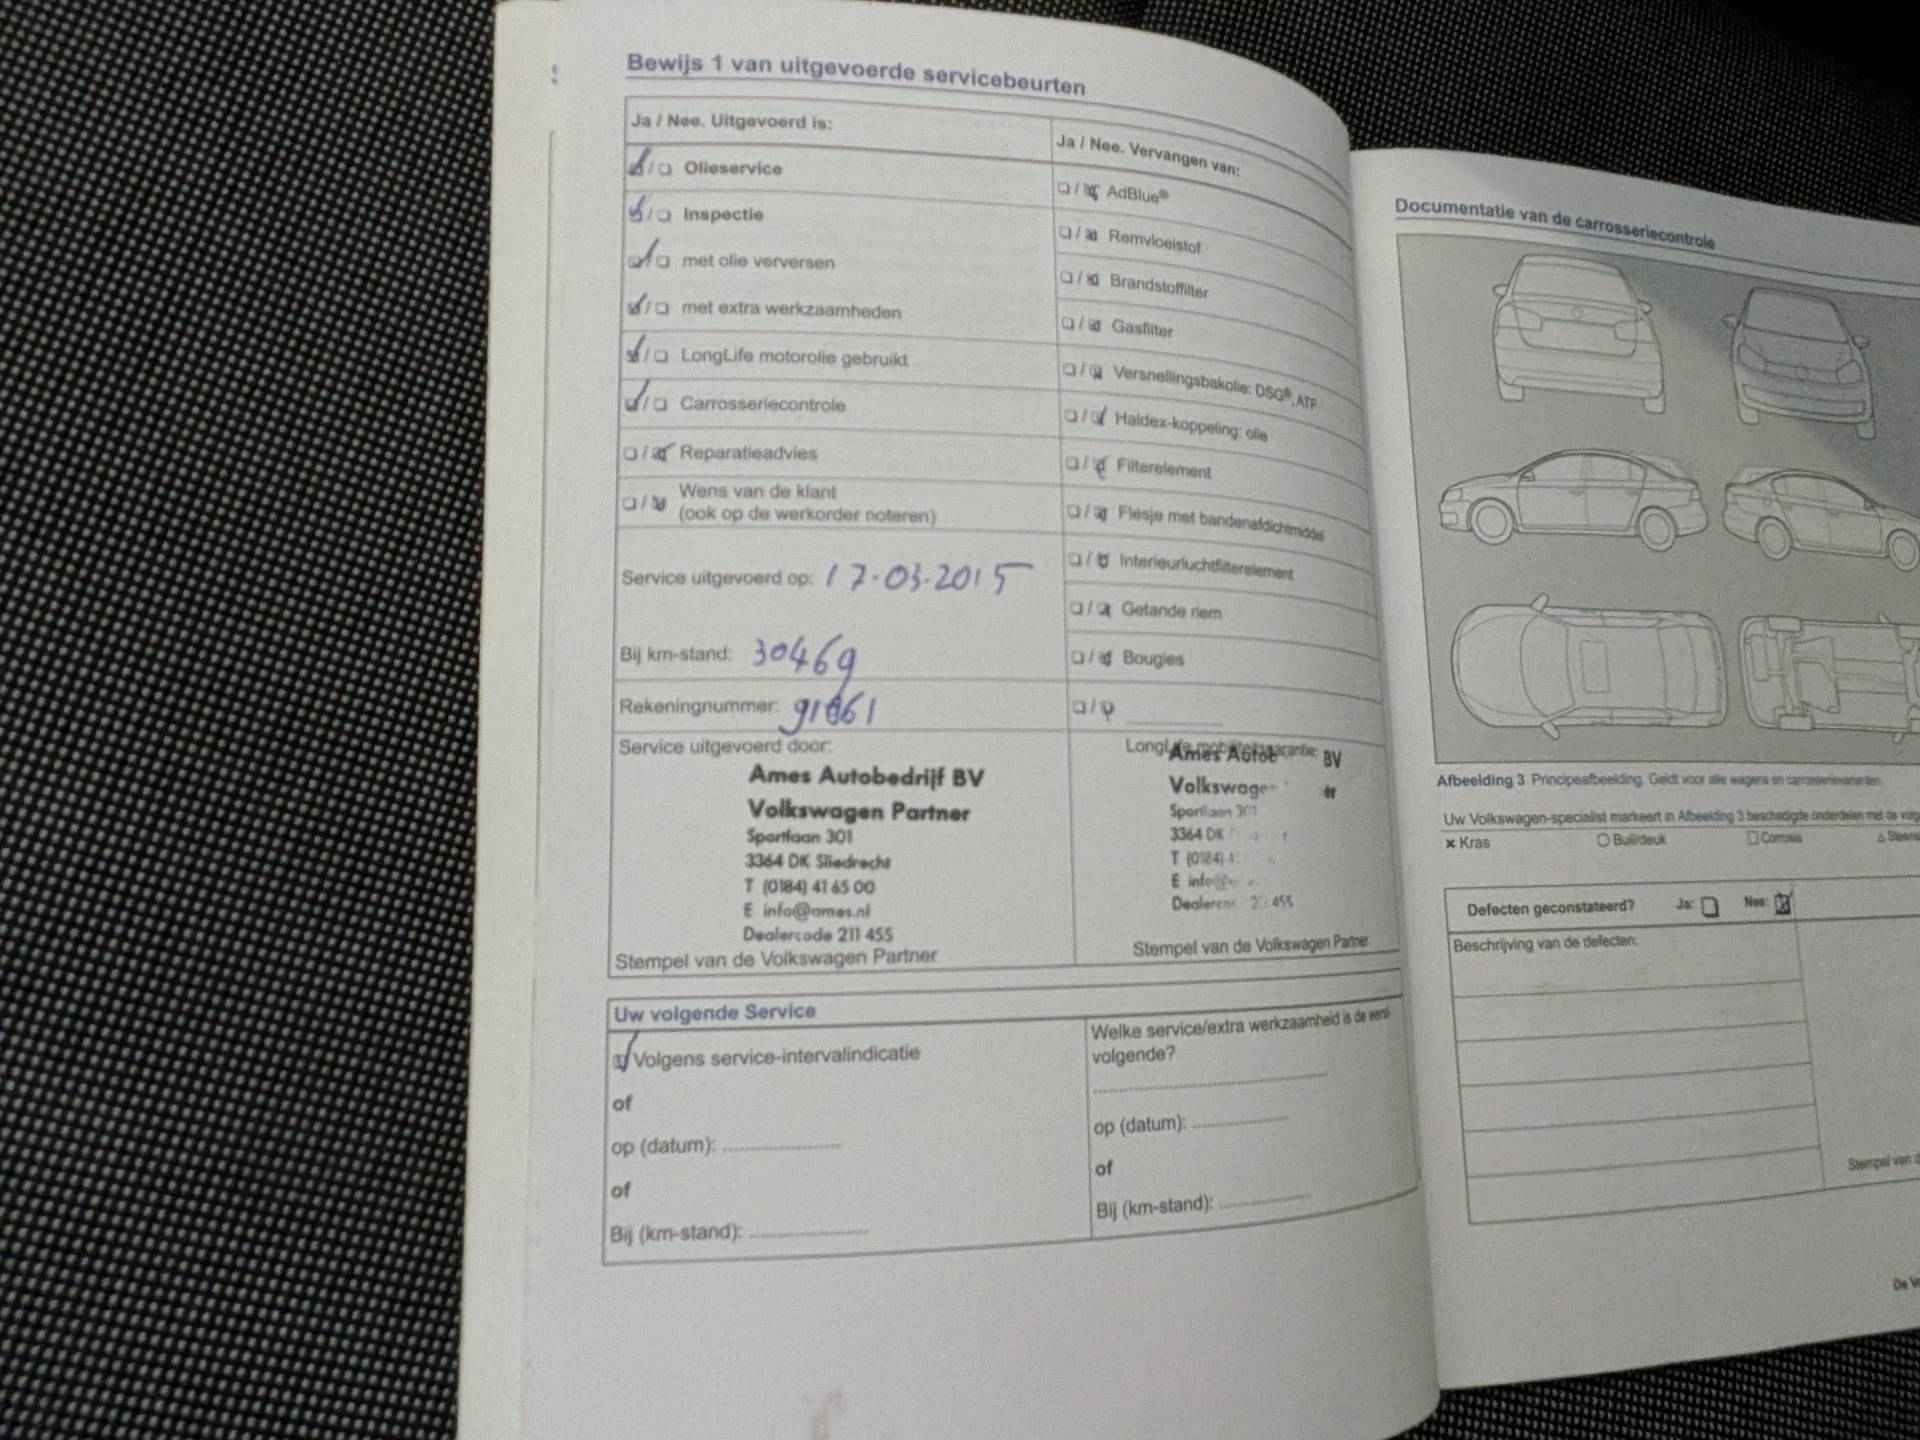 Bewijs 1 van uitgevoerde servicebeurten
Ja / Nee. Uitgevoerd is:
Olieservice
Inspectie
met olie verversen
met extra werkzaamheden
LongLife motorolie gebruikt
Carrosseriecontrole
Reparatieadvies
Wens van de klant
(ook op de werkorder noteren)
Service uitgevoerd op: 17-03-2015
Bij km-stand: 30469
Rekeningnummer:
Service uitgevoerd door:
Ames Autobedrijf BV
Volkswagen Partner
Sportlaan 301
3364 DK Sliedrecht
T (0184) 41 65 00
E info@ames.nl
Dealercode 211 455
Stempel van de Volkswagen Partner
Ja / Nee. Vervangen van:
AdBlue®
Remvloeistof
Brandstoffilter
Gasfilter
Versnellingsbakolie: DSG®, ATF
Haldex-koppeling: olie
Filterelement
Flesje met bandenafdichtmiddel
Interieurluchtfilterelement
Getande riem
Bougies
LongLife mobiliteitsgarantie:
Ames BV
Sportlaan 301
3364 DK
T (0184)
E
455
Stempel van de Volkswagen Partner
Uw volgende Service
Volgens service-intervalindicatie
of
op (datum):
of
Bij (km-stand):
Welke service/extra werkzaamheid is de eerst-
volgende?
op (datum):
of
Bij (km-stand):
Documentatie van de carrosseriecontrole
Afbeelding 3 Principeafbeelding. Geldt voor alle wagens en carrosserievarianten.
Uw Volkswagen-specialist markeert in Afbeelding 3 beschadigde onderdelen met de
× Kras
Buil/deuk
Corrosie
Defecten geconstateerd? Ja: Nee:
Beschrijving van de defecten:
Stempel van
De